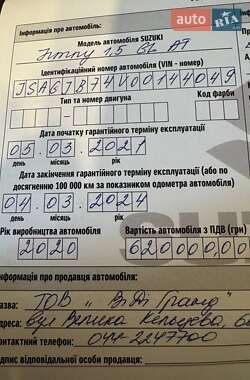 auto.RIA.com
Інформація про автомобіль:
Модель автомобіля SUZUKI
Jimny 1,5 GL AT
Ідентифікаційний номер автомобіля (VIN - номер)
JSAGJB74V00144049
Тип та номер двигуна
Код фарби
Дата початку гарантійного терміну експлуатації
05.03.2021
день місяць рік
Дата закінчення гарантійного терміну експлуатації (або по
досягненню 100 000 км за показником одометра автомобіля)
04.03.2024
день місяць рік
Рік виробництва автомобіля
Вартість автомобіля з ПДВ (грн)
2020
620000,00
Інформація про продавця автомобіля:
назва: ТОВ „ ВіДі Гранд"
адреса: вул Велика Кільцева, 60
контактний телефон: 044 2247700
підпис відповідальної особи продавця: